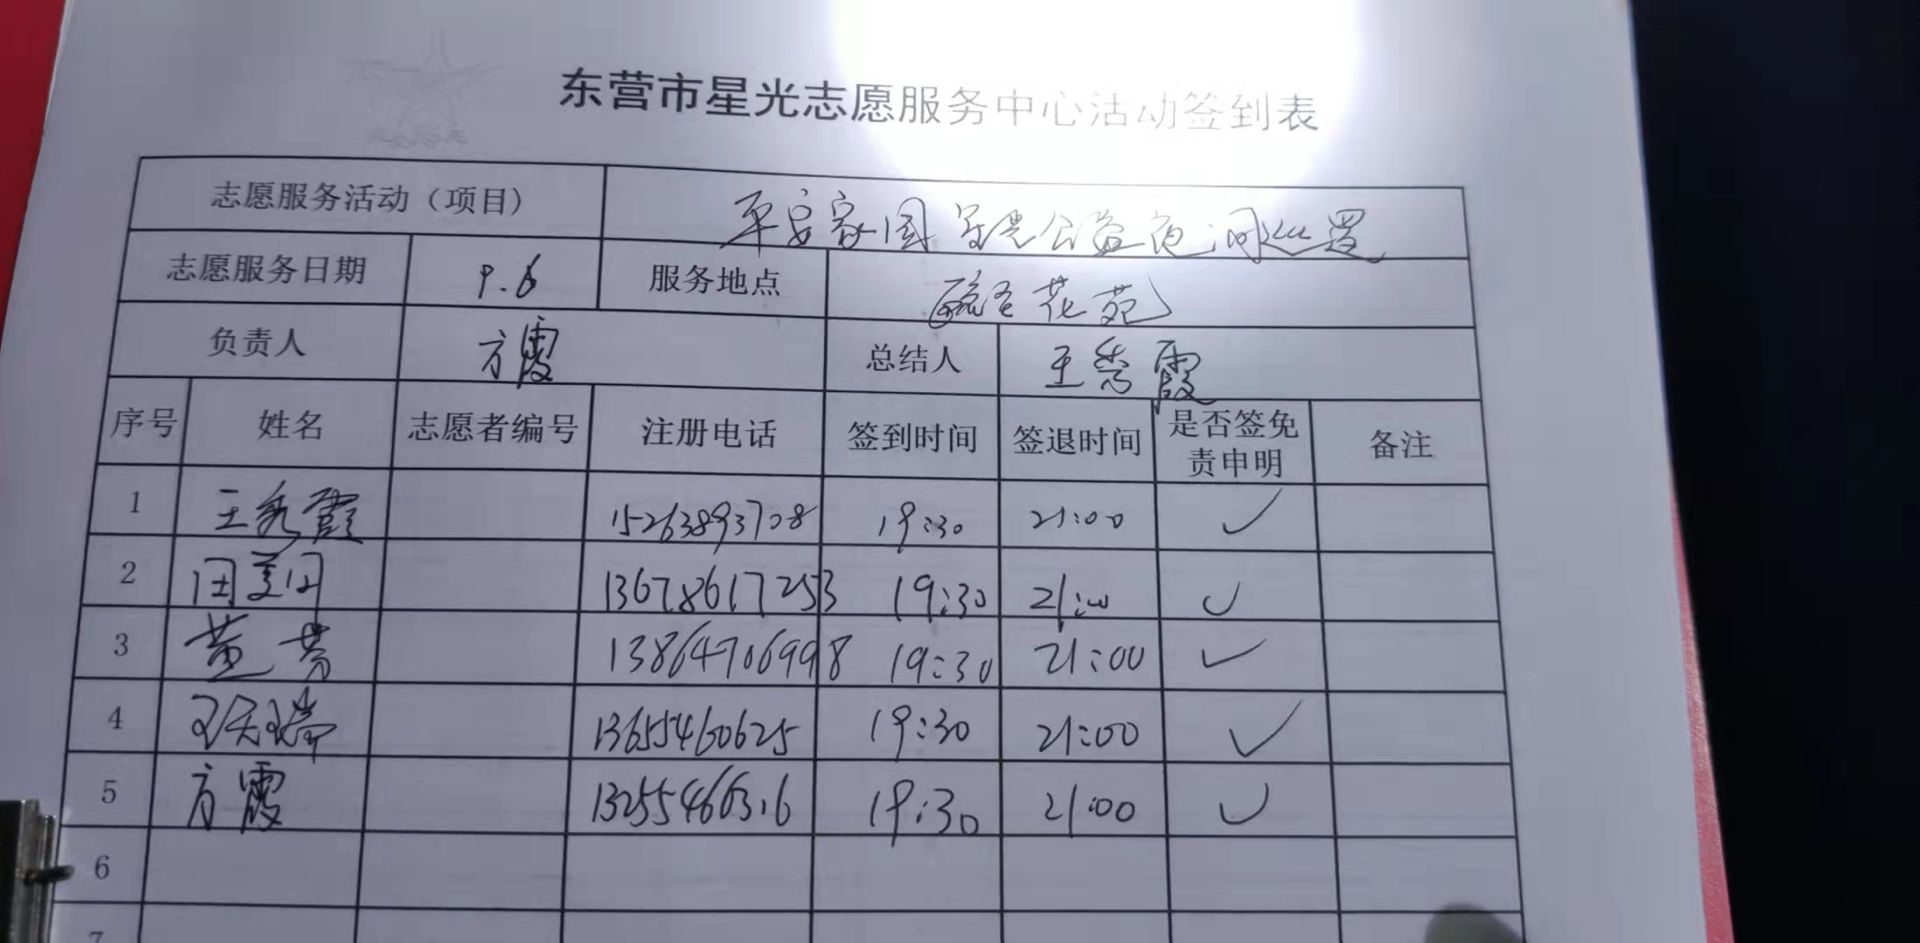 东营市星光志愿服务中心活动签到表
志愿服务活动（项目） 平安家园 星光公益夜间巡逻
志愿服务日期 9.6 服务地点 花苑
负责人 方霞 总结人 王秀霞
序号 姓名 志愿者编号 注册电话 签到时间 签退时间 是否签免责申明 备注
1 王秀霞 15263893708 19:30 21:00 ✓
2 13678617253 19:30 21:00 ✓
3 黄芳 13864706998 19:30 21:00 ✓
4 13655460625 19:30 21:00 ✓
5 方霞 19:30 21:00 ✓
6
7